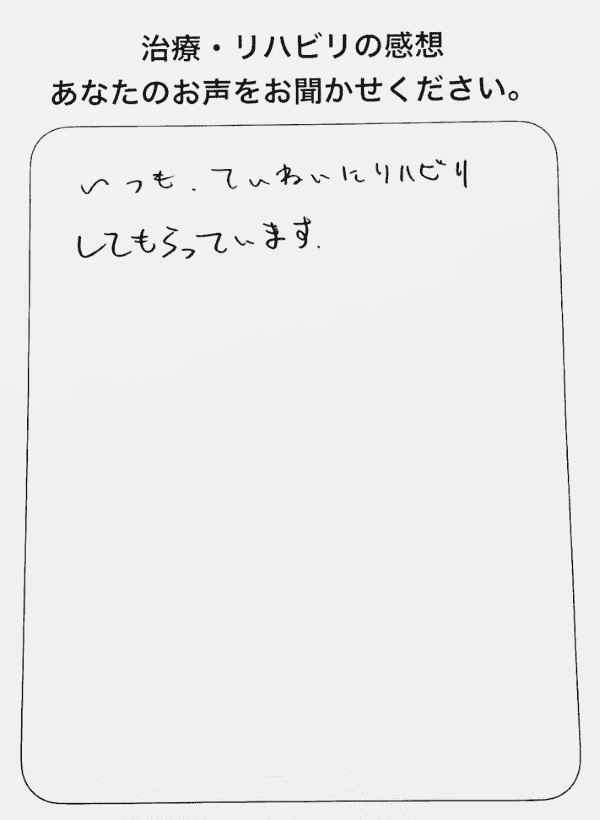 治療・リハビリの感想
あなたのお声をお聞かせください。
いつも、ていねいにリハビリ
してもらっています.